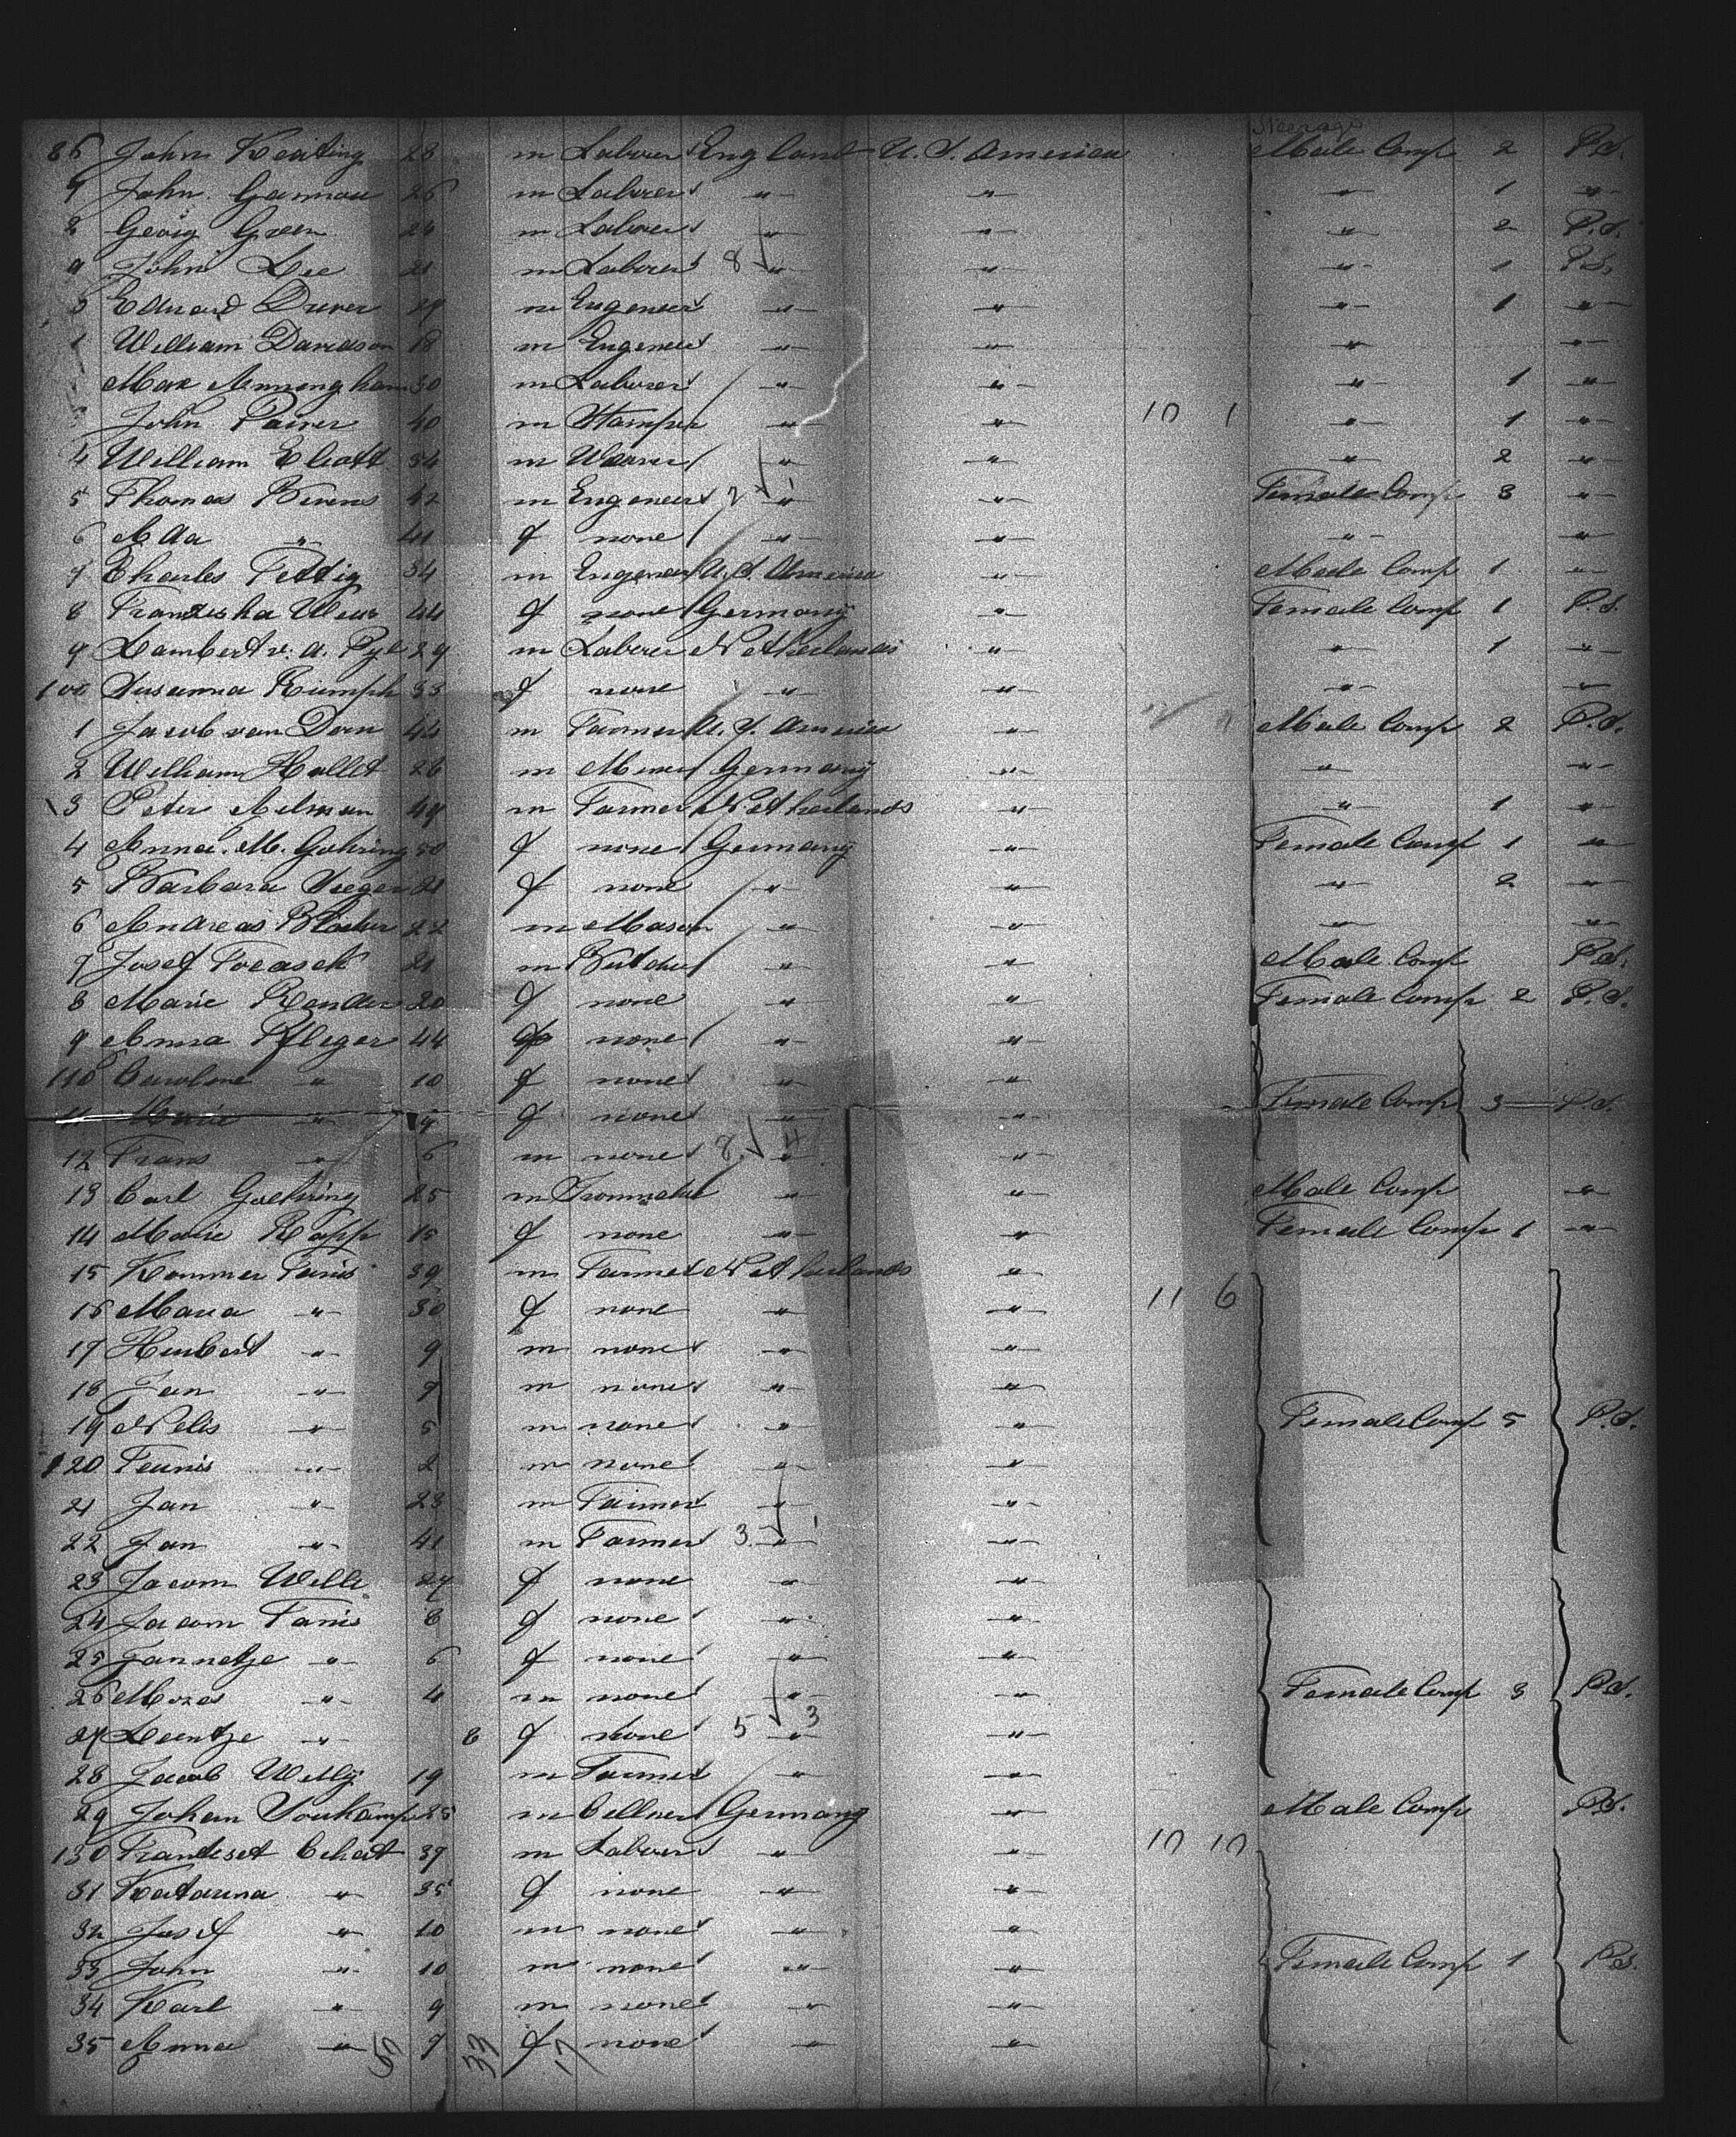 Steerage
86 John Keating 28 m Laborer England U. S. America Male Comp 2 P.S.
7 John Gannon 26 m Laborer " " " 1 "
8 Georg Green 24 m Laborer " " " 2 P.S.
9 John Lee 21 m Laborer 8 " " " 1 P.S.
Edward Driver 19 m Engeneer " " " 1 "
1 William Davidson 18 m Engeneer " " " "
Max 30 m Laborer " " " 1 "
John 40 m " " 10 1 " 1 "
4 William Eliott 34 m Weaver " " " 2 "
5 Thomas Bevens 42 m Engeneer 2 " 1 " Female Comp 3 "
6 Ada " 41 f none " " " "
7 Charles Tettig 34 m Engeneer U. S. America " Male Comp 1 "
8 Franziska 44 f none Germany " Female Comp 1 P.S.
9 Lambert v. a. Pyl 29 m Laborer Netherlands " " 1 "
100 Susanna Rumph 33 f none " " " "
1 Jacob van Dorn 44 m Farmer U. S. America " Male Comp 2 P.S.
2 William Hallet 26 m Miner Germany " " "
3 Peter 49 m Farmer Netherlands " " 1 "
4 Anna M. Gohring 58 f none Germany " Female Comp 1 "
5 Barbara 21 f none " " " 2 "
6 Andreas 22 m Mason " " " "
7 Josef 21 m Butcher " " Male Comp P.S.
8 Marie 20 f none " " Female Comp 2 P.S.
9 Anna Pfleger 44 f none " "
110 Caroline " 10 f none " "
11 Marie " 9 f none " " Female Comp 3 P.S.
12 Frans " 6 m none 8 " 4 "
13 Carl Goehring 25 m " " Male Comp "
14 Marie Rapp 15 f none " " Female Comp 1 "
15 Kommer Tanis 39 m Farmer Netherlands "
16 Maria " 30 f none " " 11 6
17 Huibert " 9 m none " "
18 Jan " 7 m none " "
19 Nelis " 5 m none " " Female Comp 5 P.S.
120 Teunis " 2 m none " "
21 Jan " 23 m Farmer " "
22 Jan " 41 m Farmer 3 " 1 "
23 Jacom Welle 27 f none " "
24 Jacom Tanis 8 f none " "
25 Jannetje " 6 f none " "
26 Mozes " 4 m none " " Female Comp 3 P.S.
27 Leentje " 8 f none 5 " 3 "
28 Jacob 19 m Farmer " "
29 Johan 25 m Cellner Germany " Male Comp P.S.
130 39 m Laborer " " 10 10
31 Katarina " 35 f none " "
32 Josef " 10 m none " "
33 John " 10 m none " " Female Comp 1 P.S.
34 Karl " 9 m none " "
35 Anna " 7 f none " "
50 33 17